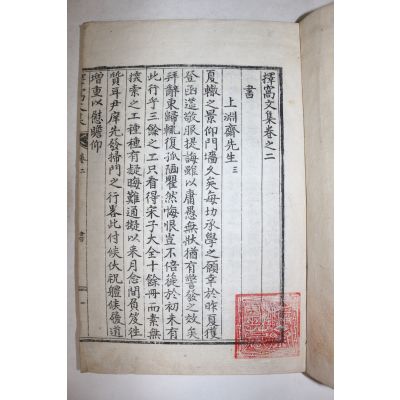 擇窩文集卷之二
書
上淵齋先生 三
夏轍之景仰門墻久矣每切承學之願幸於昨夏獲
登函造敬服提誨雖以庸愚無狀猶有警發之效矣
拜辭東歸輒復孤陋瞿然悔恨豈不倍蓰於初未有
此行乎三餘之工只看得宋子大全十餘冊而素無
探索之工種種有疑晦未通擬以來月念間負笈往
質耳尹庠先發掃門之行畧此付候伏祝體候後道
增重以慰瞻仰
卷二
書
一